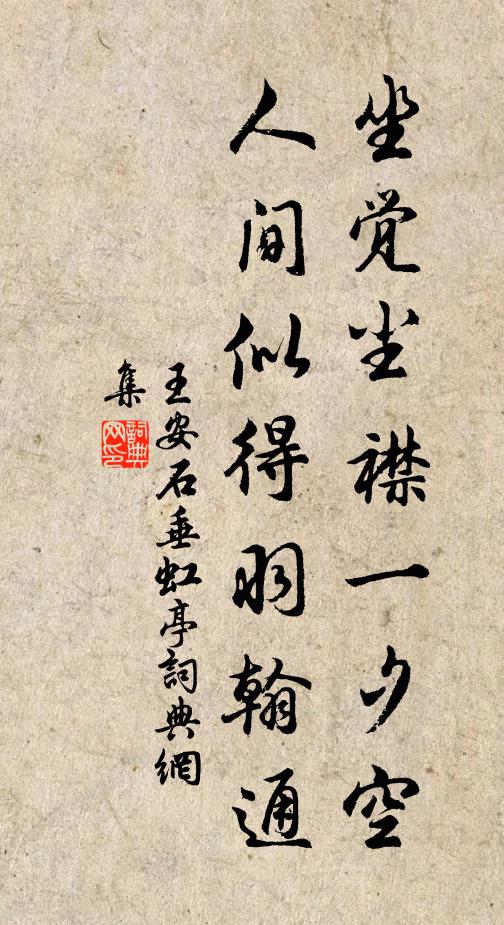 坐觉尘襟一夕空
人间似得羽翰通
王安石垂虹亭詞典網
集
詞典
网印